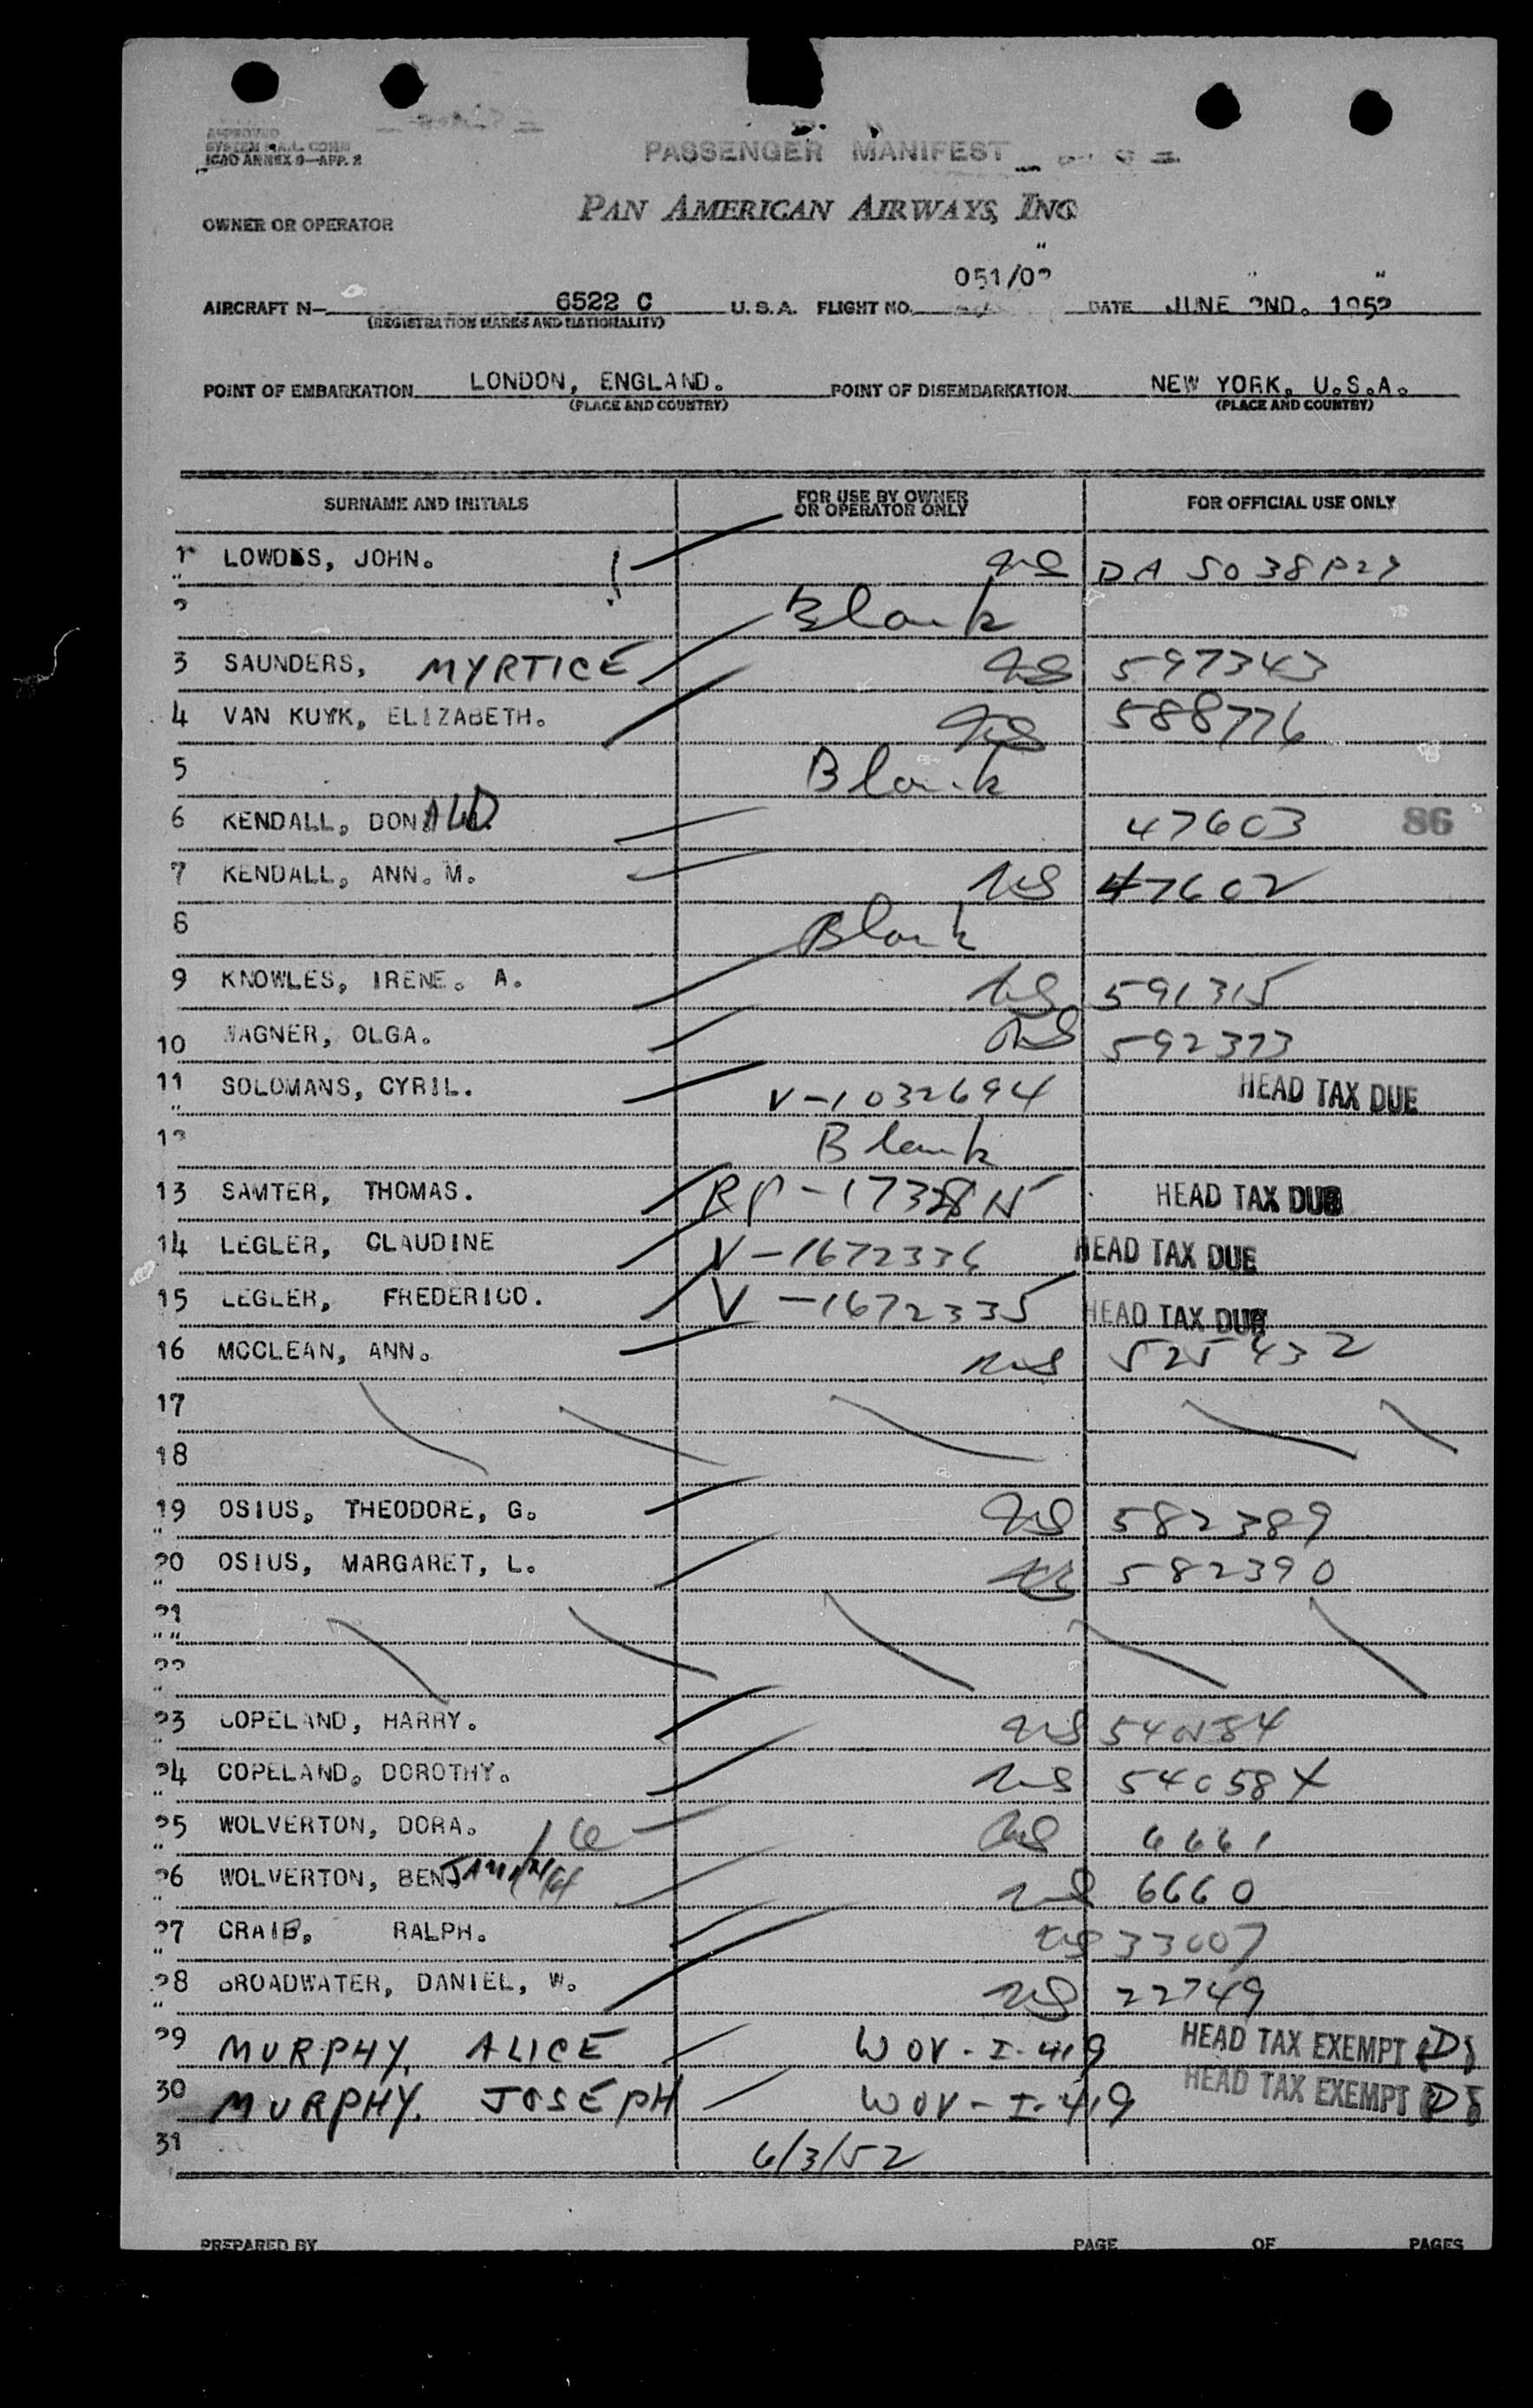 APPROVED
ICAO ANNEX 9—APP. 2
PASSENGER MANIFEST
OWNER OR OPERATOR PAN AMERICAN AIRWAYS, INC.
AIRCRAFT N— 6522 C U.S.A. FLIGHT NO. 051/02 DATE JUNE 2ND. 1952
(REGISTRATION MARKS AND NATIONALITY)
POINT OF EMBARKATION LONDON, ENGLAND. POINT OF DISEMBARKATION NEW YORK. U.S.A.
(PLACE AND COUNTRY) (PLACE AND COUNTRY)
SURNAME AND INITIALS FOR USE BY OWNER OR OPERATOR ONLY FOR OFFICIAL USE ONLY
1 LOWDES, JOHN. US DA 5038P27
2 Blank
3 SAUNDERS, MYRTICE US 597343
4 VAN KUYK, ELIZABETH. US 588776
5 Blank
6 KENDALL, DONALD 47603 86
7 KENDALL, ANN. M. US 47602
8 Blank
9 KNOWLES, IRENE. A. US 591315
10 WAGNER, OLGA. US 592373
11 SOLOMANS, CYRIL. V-1032694 HEAD TAX DUE
12 Blank
13 SAMTER, THOMAS. RP-17328N HEAD TAX DUE
14 LEGLER, CLAUDINE V-1672336 HEAD TAX DUE
15 LEGLER, FREDERICO. V-1672335 HEAD TAX DUE
16 MCCLEAN, ANN. US 525432
17
18
19 OSIUS, THEODORE, G. US 582389
20 OSIUS, MARGARET, L. US 582390
21
22
23 COPELAND, HARRY. US 540584
24 COPELAND, DOROTHY. US 540584
25 WOLVERTON, DORA. US 6661
26 WOLVERTON, BENJAMIN US 6660
27 CRAIB, RALPH. US 33007
28 BROADWATER, DANIEL, W. US 22749
29 MURPHY, ALICE WOV-I-419 HEAD TAX EXEMPT (D)
30 MURPHY. JOSEPH WOV-I-419 HEAD TAX EXEMPT (D)
31 6/3/52
PREPARED BY PAGE OF PAGES